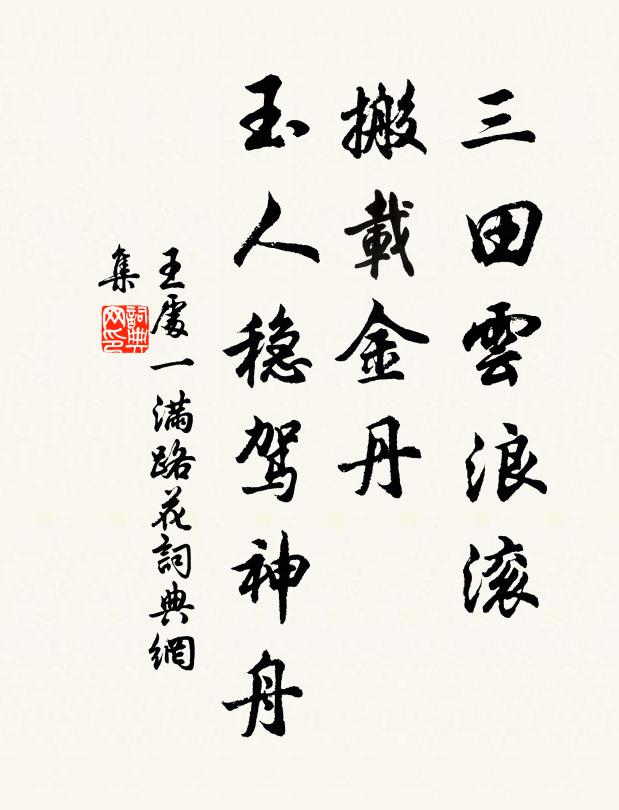 三田雲浪滚
搬載金丹
玉人稳駕神舟
王處一满路花詞典網
集
詞典
网印